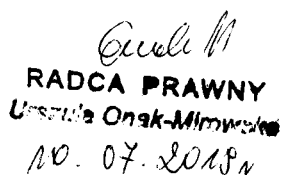 RADCA PRAWNY
Urszula Onak-Mirowska
10. 07. 2019r